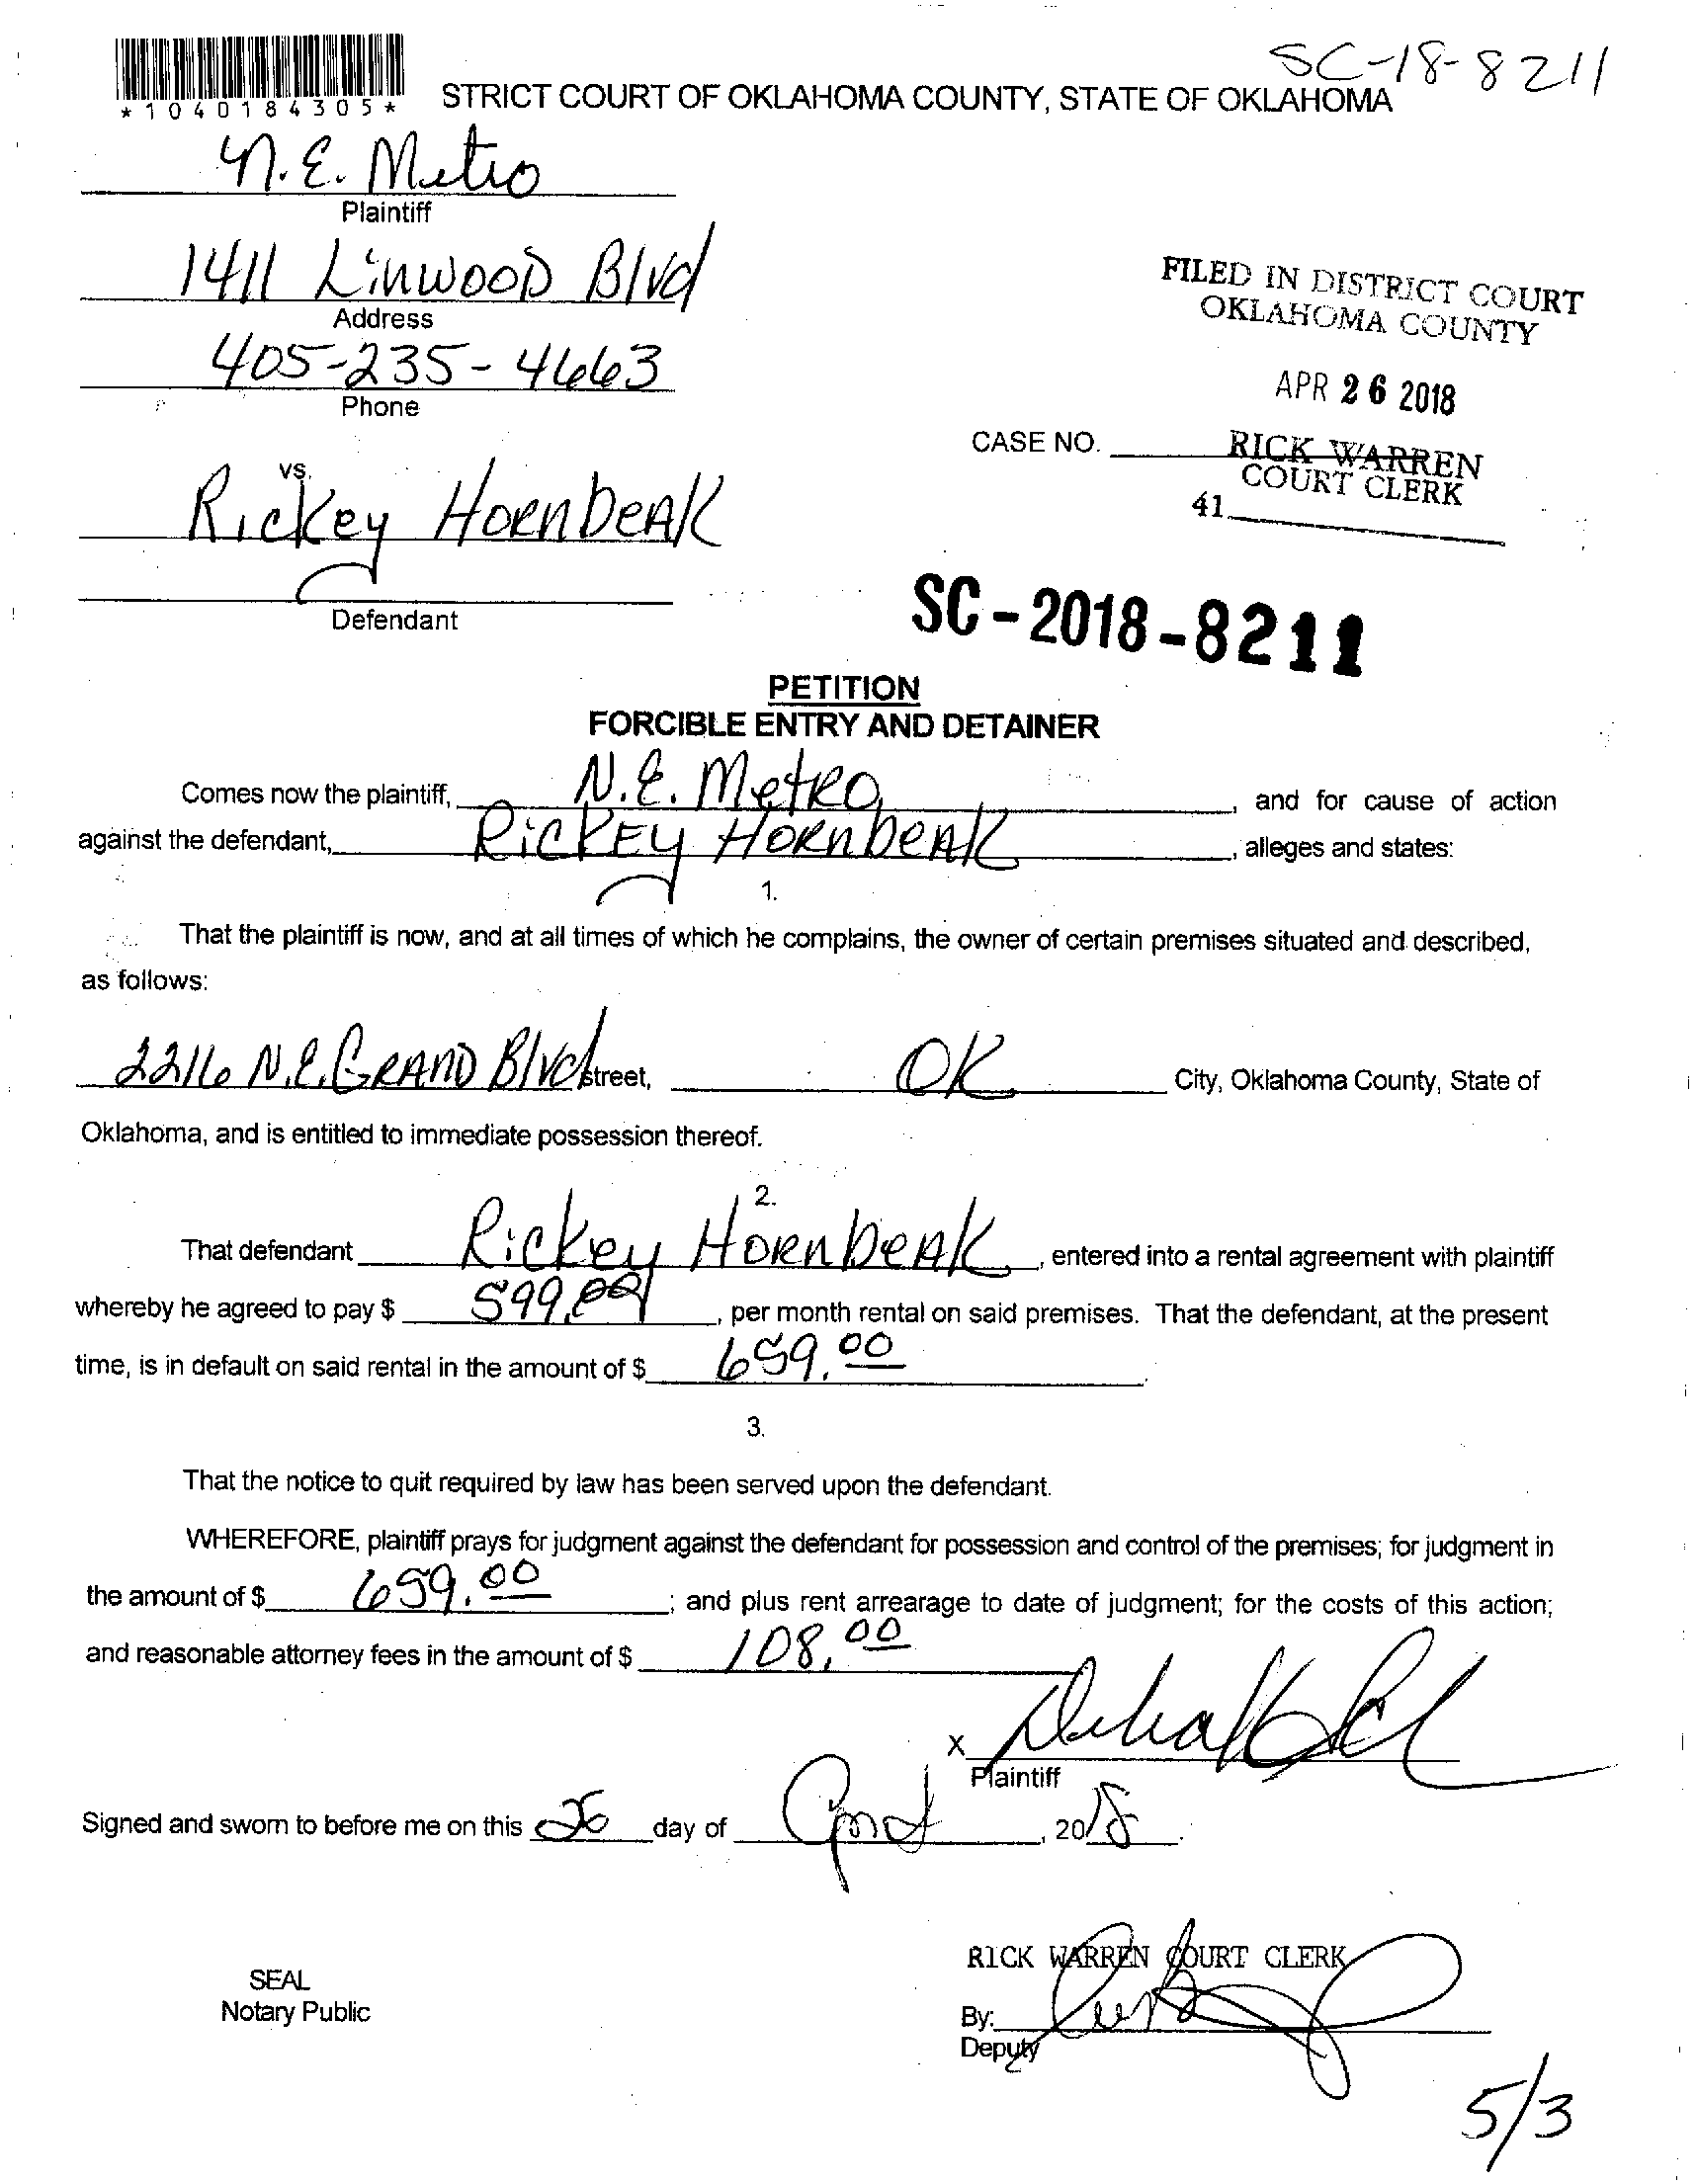 SC-18-8211
*1040184305*
STRICT COURT OF OKLAHOMA COUNTY, STATE OF OKLAHOMA
N.E. Metro
Plaintiff
1411 Linwood Blvd
Address
405-235-4663
Phone
FILED IN DISTRICT COURT
OKLAHOMA COUNTY
APR 26 2018
RICK WARREN
COURT CLERK
41
CASE NO.
vs.
Rickey HornbeAK
Defendant
SC-2018-8211
PETITION
FORCIBLE ENTRY AND DETAINER
Comes now the plaintiff, N.E. MetRO, and for cause of action
against the defendant, RicKEy HoRnbeAK, alleges and states:
1.
That the plaintiff is now, and at all times of which he complains, the owner of certain premises situated and described,
as follows:
2216 N.E. GRAND Blvd street, OK City, Oklahoma County, State of
Oklahoma, and is entitled to immediate possession thereof.
2.
That defendant Rickey HoRnbeAK, entered into a rental agreement with plaintiff
whereby he agreed to pay $ 599.00, per month rental on said premises. That the defendant, at the present
time, is in default on said rental in the amount of $ 659.00.
3.
That the notice to quit required by law has been served upon the defendant.
WHEREFORE, plaintiff prays for judgment against the defendant for possession and control of the premises; for judgment in
the amount of $ 659.00; and plus rent arrearage to date of judgment; for the costs of this action;
and reasonable attorney fees in the amount of $ 108.00
X
Plaintiff
Signed and sworn to before me on this 26 day of April, 2018.
RICK WARREN COURT CLERK
SEAL
Notary Public
By:
Deputy
5/3